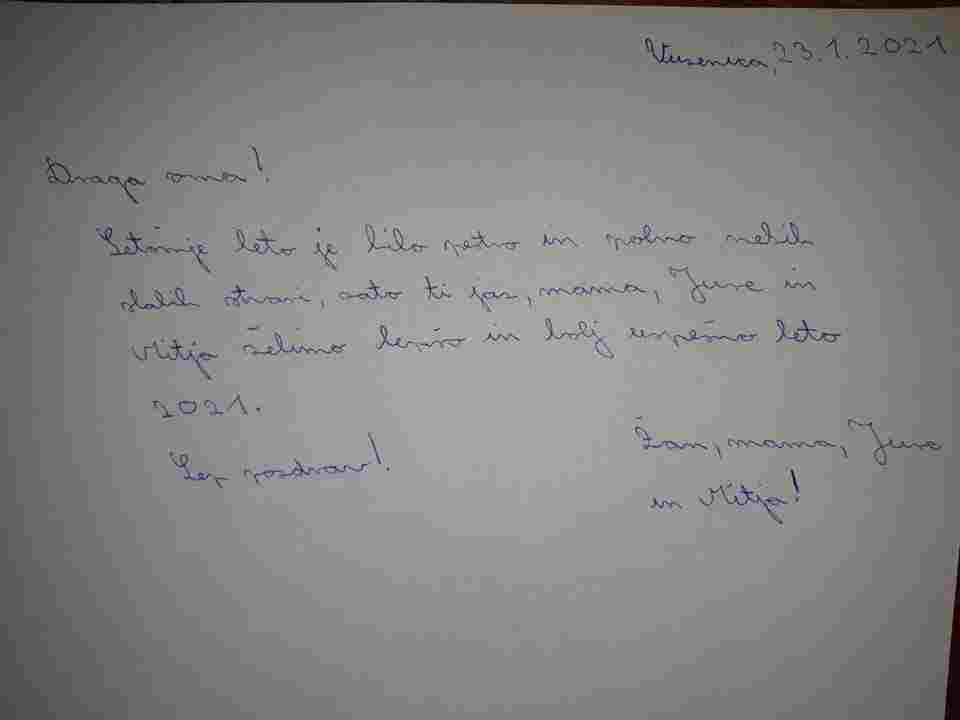 Vuzenica, 23.1.2021
Draga oma!
Letošnje leto je bilo pestro in polno nekih
slabih stvari, zato ti jaz, mama, Jure in
Mitja želimo lepšo in bolj uspešno leto
2021.
Lep pozdrav!
Žan, mama, Jure
in Mitja!